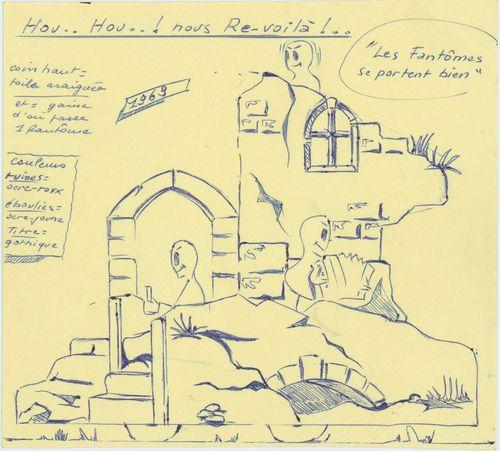 Hou.. Hou..! nous Re-voilà!..
"Les Fantômes
se portent bien"
coin haut =
toile araignée
et = gaine
d'où passe
1 fantôme
1969
Couleurs
ruines =
ocre-roux
éboulies =
ocre-jaune
Titre =
gothique